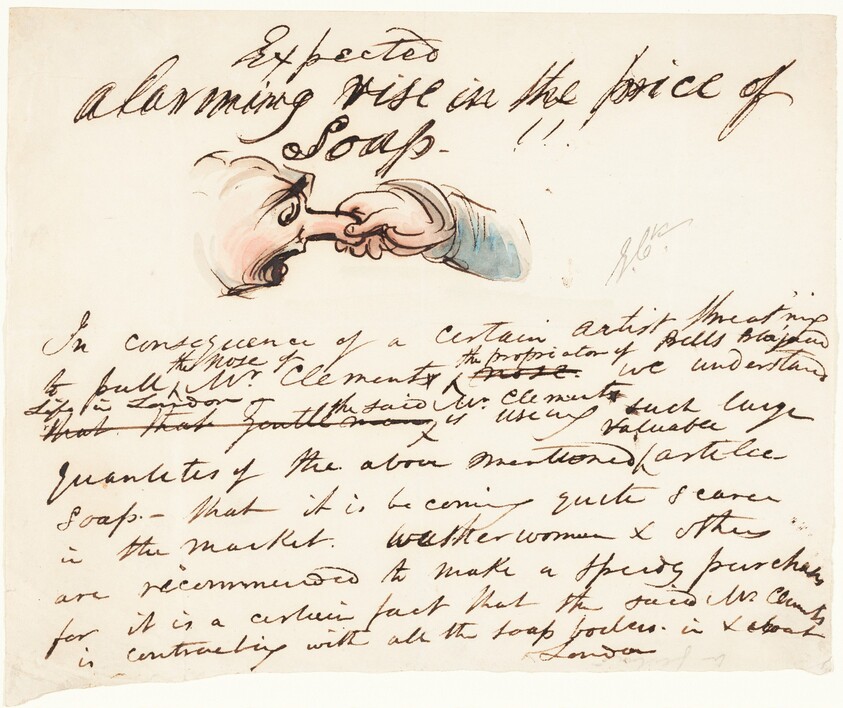 Expected
alarming rise in the price of
Soap. !!!
G. Ck
In consequence of a certain artist threat'ning
to pull the nose of Mr. Clement the propriator of Bells
Life in London the said Mr. Clement we understand
is using such large
quantities of the above mentioned valuable article
soap - that it is becoming quite scarce
in the market. washerwomen & others
are recommended to make a speedy purchase
for it is a certain fact that the said Mr. Clement
is contracting with all the soap boilers in & about
London